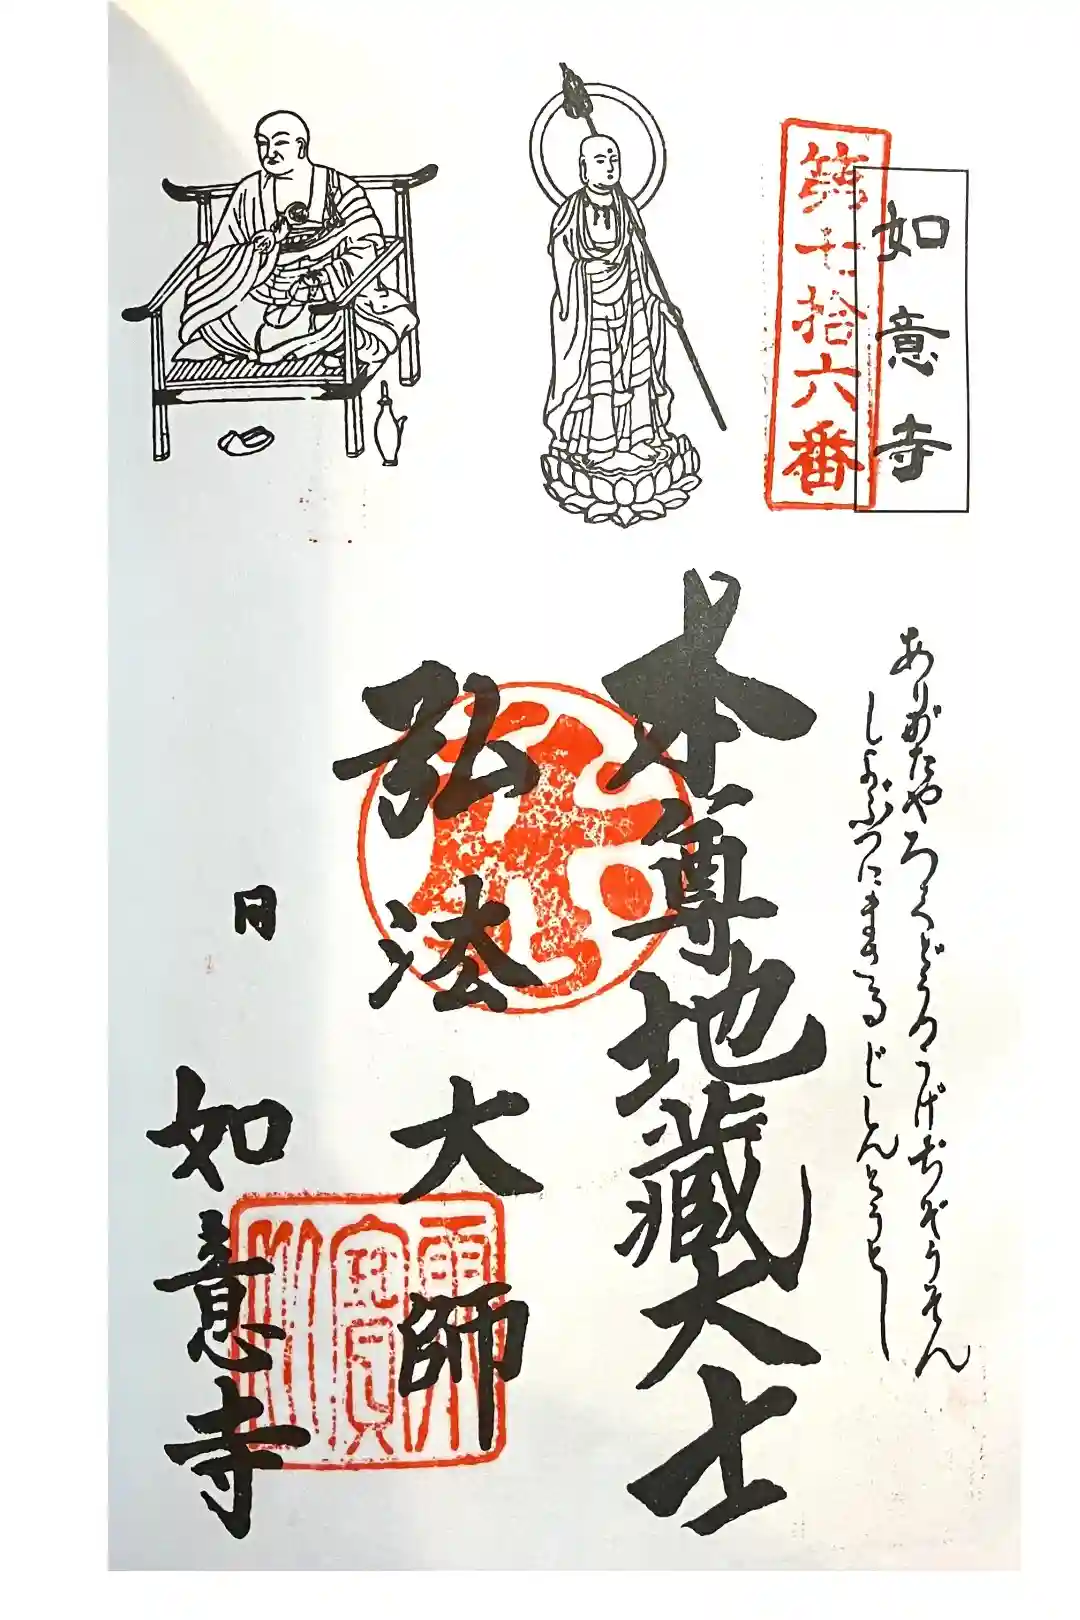 如意寺
第七拾六番
ありがたやろくどうのうげぢぞうそん
しよぶつにまさるじしんとうとし
本尊地藏大士
弘法大師
雨寶山
日
如意寺